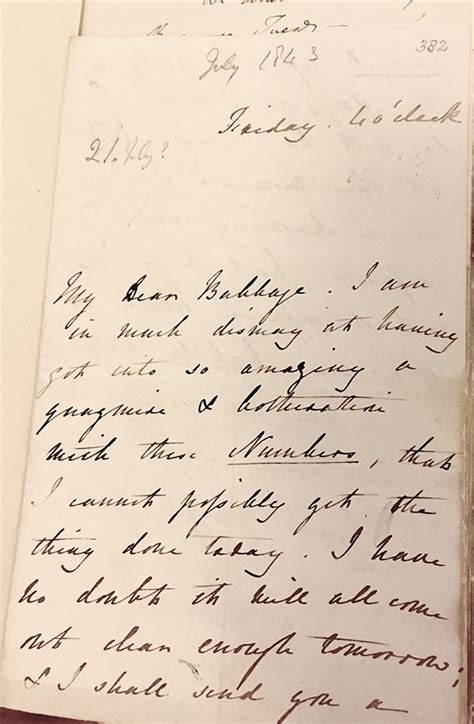 Tuesd
July 1843
382
Friday. 4 o'clock
21 July?
My Dear Babbage. I am
in much dismay at having
got into so amazing a
quagmire & botheration
with these Numbers, that
I cannot possibly get the
thing done today. I have
no doubt it will all come
out clear enough tomorrow;
& I shall send you a